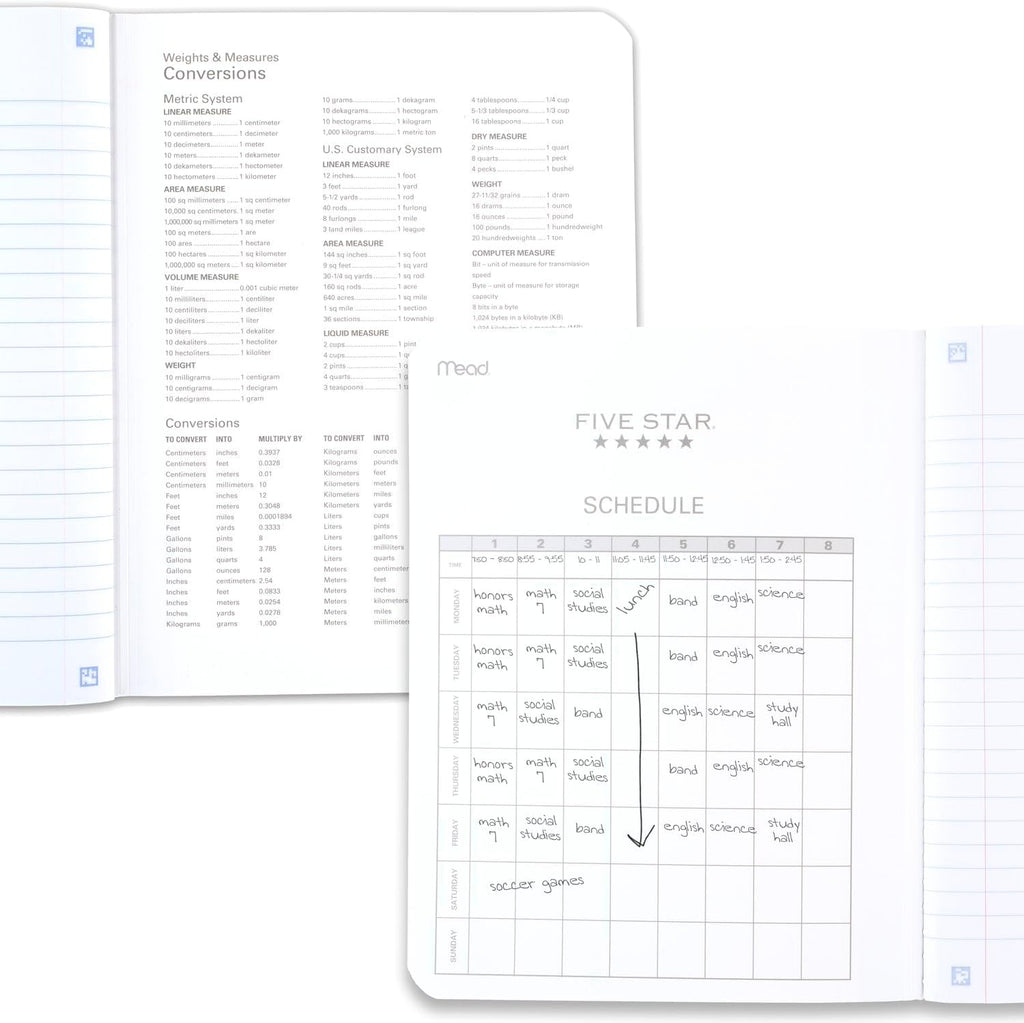 Weights & Measures
Conversions
Metric System
LINEAR MEASURE
10 millimeters ............1 centimeter
10 centimeters............1 decimeter
10 decimeters.............1 meter
10 meters....................1 dekameter
10 dekameters............1 hectometer
10 hectometers...........1 kilometer
AREA MEASURE
100 sq millimeters .....1 sq centimeter
10,000 sq centimeters.1 sq meter
1,000,000 sq millimeters 1 sq meter
100 sq meters..............1 are
100 ares ......................1 hectare
100 hectares ...............1 sq kilometer
1,000,000 sq meters ...1 sq kilometer
VOLUME MEASURE
1 liter...........................0.001 cubic meter
10 milliliters.................1 centiliter
10 centiliters................1 deciliter
10 deciliters .................1 liter
10 liters .......................1 dekaliter
10 dekaliters................1 hectoliter
10 hectoliters...............1 kiloliter
WEIGHT
10 milligrams..............1 centigram
10 centigrams.............1 decigram
10 decigrams..............1 gram
10 grams.....................1 dekagram
10 dekagrams.............1 hectogram
10 hectograms ...........1 kilogram
1,000 kilograms..........1 metric ton
U.S. Customary System
LINEAR MEASURE
12 inches....................1 foot
3 feet..........................1 yard
5-1/2 yards..................1 rod
40 rods.......................1 furlong
8 furlongs ..................1 mile
3 land miles................1 league
AREA MEASURE
144 sq inches..............1 sq foot
9 sq feet......................1 sq yard
30-1/4 sq yards...........1 sq rod
160 sq rods.................1 acre
640 acres....................1 sq mile
1 sq mile.....................1 section
36 sections..................1 township
LIQUID MEASURE
2 cups.........................1 pint
4 cups.........................1
2 pints ........................1
4 quarts.......................1
3 teaspoons ................1
4 tablespoons.............1/4 cup
5-1/3 tablespoons.......1/3 cup
16 tablespoons...........1 cup
DRY MEASURE
2 pints ........................1 quart
8 quarts ......................1 peck
4 pecks .......................1 bushel
WEIGHT
27-11/32 grains ...........1 dram
16 drams.....................1 ounce
16 ounces ...................1 pound
100 pounds.................1 hundredweight
20 hundredweights ....1 ton
COMPUTER MEASURE
Bit – unit of measure for transmission
speed
Byte – unit of measure for storage
capacity
8 bits in a byte
1,024 bytes in a kilobyte (KB)
1,024 kilobytes in a megabyte (MB)
Conversions
TO CONVERT INTO MULTIPLY BY
Centimeters inches 0.3937
Centimeters feet 0.0328
Centimeters meters 0.01
Centimeters millimeters 10
Feet inches 12
Feet meters 0.3048
Feet miles 0.0001894
Feet yards 0.3333
Gallons pints 8
Gallons liters 3.785
Gallons quarts 4
Gallons ounces 128
Inches centimeters 2.54
Inches feet 0.0833
Inches meters 0.0254
Inches yards 0.0278
Kilograms grams 1,000
TO CONVERT INTO
Kilograms ounces
Kilograms pounds
Kilometers feet
Kilometers meters
Kilometers miles
Kilometers yards
Liters cups
Liters pints
Liters gallons
Liters milliliters
Liters quarts
Meters centimeter
Meters feet
Meters inches
Meters kilometers
Meters miles
Meters millimeters
Mead
FIVE STAR.
SCHEDULE
1 2 3 4 5 6 7 8
TIME 7:50 - 8:50 8:55 - 9:55 10 - 11 11:05 - 11:45 11:50 - 12:45 12:50 - 1:45 1:50 - 2:45
MONDAY honors math math 7 social studies lunch band english science
TUESDAY honors math math 7 social studies band english science
WEDNESDAY math 7 social studies band english science study hall
THURSDAY honors math math 7 social studies band english science
FRIDAY math 7 social studies band english science study hall
SATURDAY soccer games
SUNDAY